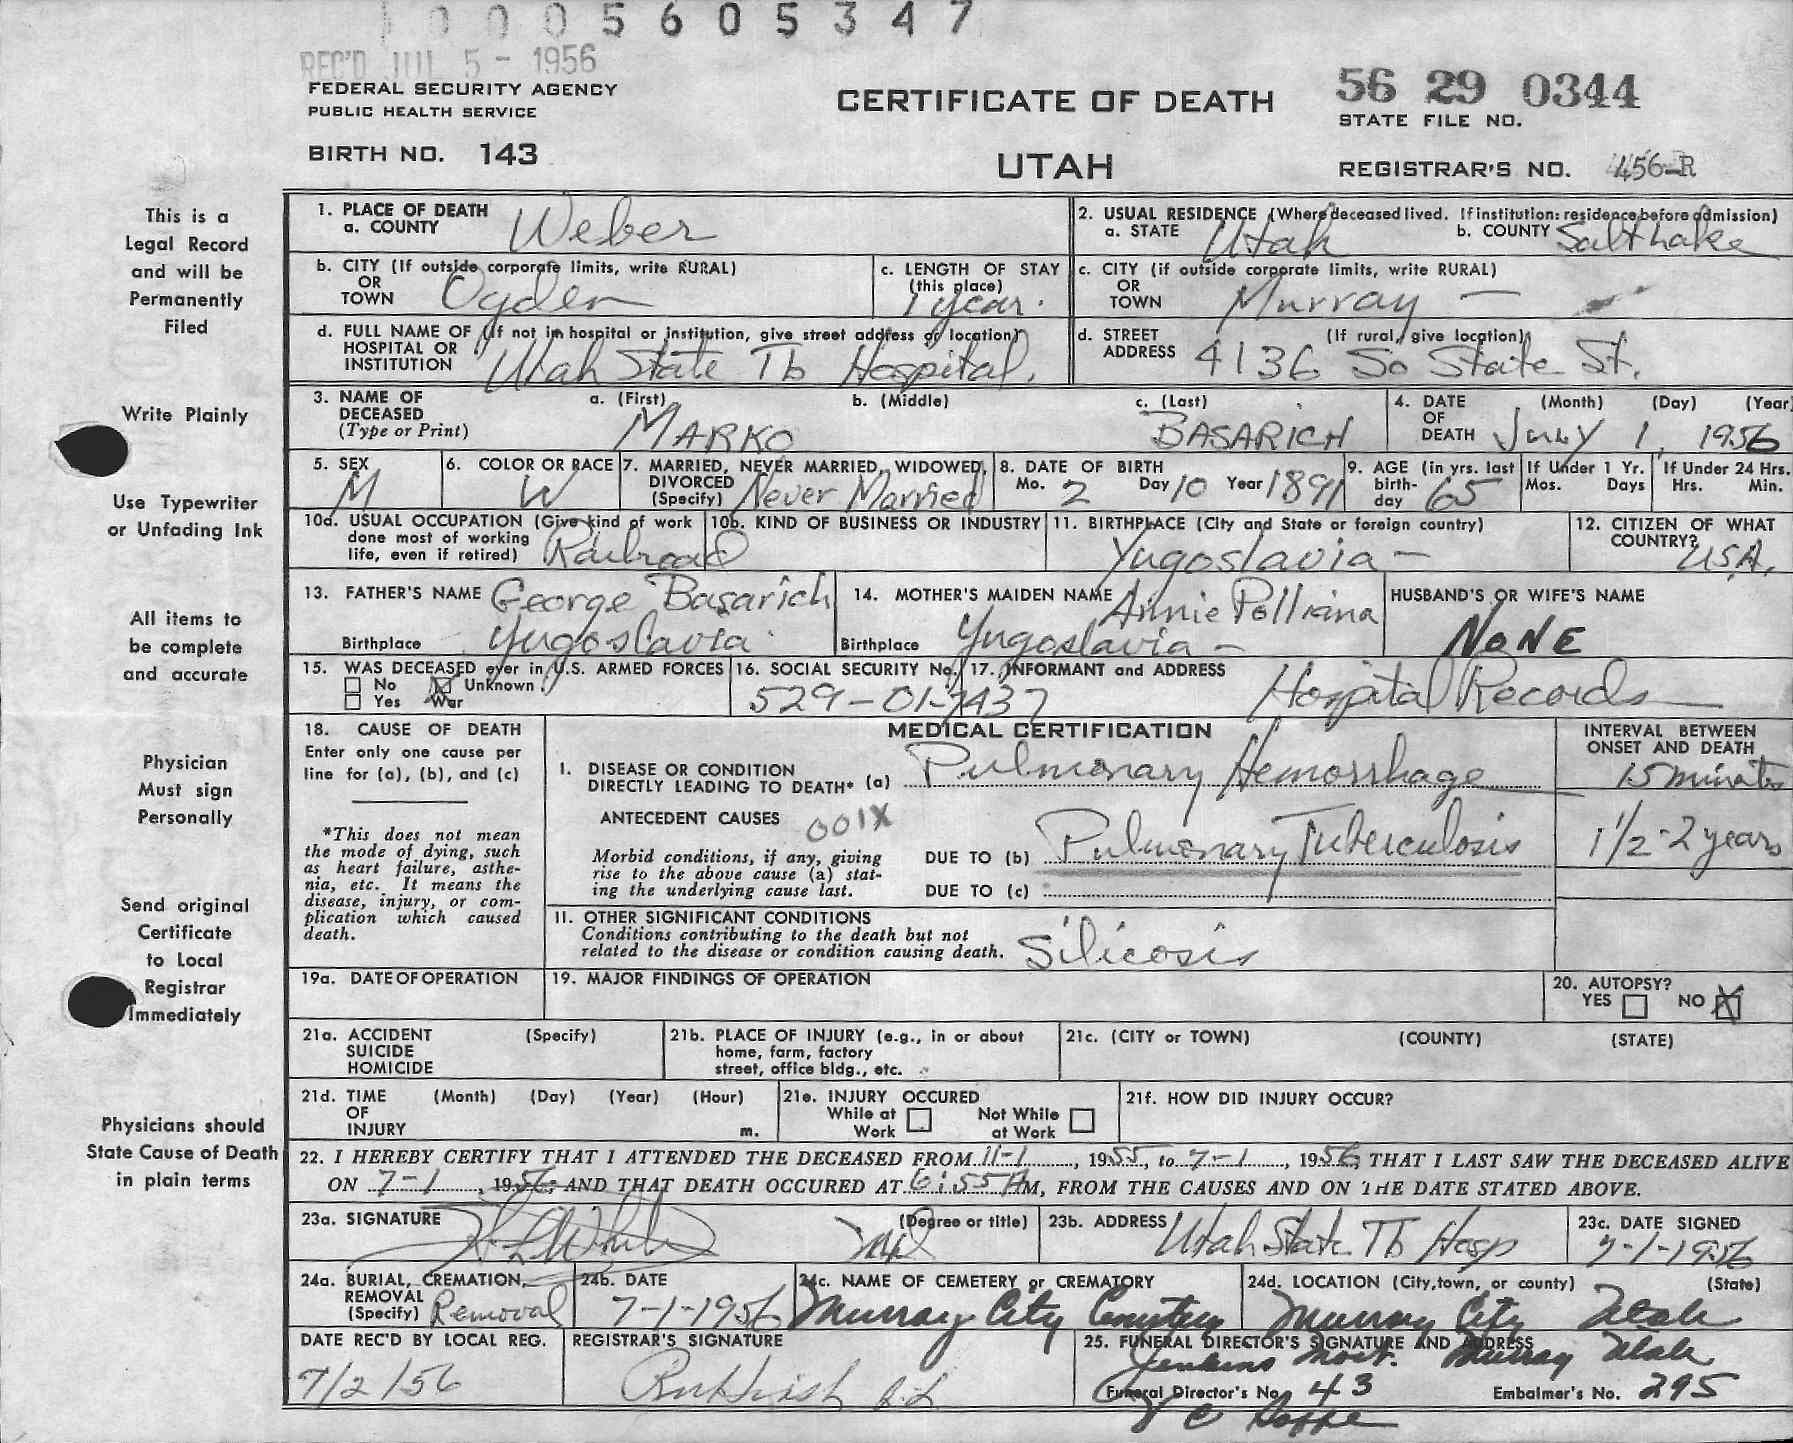 0005605347
REC'D JUL 5 - 1956
FEDERAL SECURITY AGENCY
PUBLIC HEALTH SERVICE
BIRTH NO. 143
CERTIFICATE OF DEATH
UTAH
56 29 0344
STATE FILE NO.
REGISTRAR'S NO. 456-R
This is a
Legal Record
and will be
Permanently
Filed
Write Plainly
Use Typewriter
or Unfading Ink
All items to
be complete
and accurate
Physician
Must sign
Personally
Send original
Certificate
to Local
Registrar
Immediately
Physicians should
State Cause of Death
in plain terms
1. PLACE OF DEATH
a. COUNTY Weber
2. USUAL RESIDENCE (Where deceased lived. If institution: residence before admission)
a. STATE Utah b. COUNTY Salt Lake
b. CITY (If outside corporate limits, write RURAL)
OR
TOWN Ogden
c. LENGTH OF STAY
(this place)
1 year.
c. CITY (if outside corporate limits, write RURAL)
OR
TOWN Murray -
d. FULL NAME OF (If not in hospital or institution, give street address or location)
HOSPITAL OR
INSTITUTION Utah State Tb Hospital.
d. STREET (If rural, give location)
ADDRESS 4136 So State St.
3. NAME OF DECEASED
(Type or Print)
a. (First) b. (Middle) c. (Last)
MARKO BASARICH
4. DATE OF DEATH (Month) (Day) (Year)
July 1, 1956
5. SEX
M
6. COLOR OR RACE
W
7. MARRIED, NEVER MARRIED, WIDOWED,
DIVORCED
(Specify) Never Married
8. DATE OF BIRTH
Mo. 2 Day 10 Year 1891
9. AGE (in yrs. last
birth-
day 65
If Under 1 Yr.
Mos. Days
If Under 24 Hrs.
Hrs. Min.
10a. USUAL OCCUPATION (Give kind of work
done most of working
life, even if retired) Railroad
10b. KIND OF BUSINESS OR INDUSTRY
11. BIRTHPLACE (City and State or foreign country)
Yugoslavia -
12. CITIZEN OF WHAT
COUNTRY?
USA.
13. FATHER'S NAME George Basarich
Birthplace Yugoslavia
14. MOTHER'S MAIDEN NAME Annie
Birthplace Yugoslavia -
HUSBAND'S OR WIFE'S NAME
NONE
15. WAS DECEASED ever in U.S. ARMED FORCES
No Unknown
Yes War
16. SOCIAL SECURITY No.
529-01-7437
17. INFORMANT and ADDRESS
Hospital Records
18. CAUSE OF DEATH
Enter only one cause per
line for (a), (b), and (c)
*This does not mean
the mode of dying, such
as heart failure, asthe-
nia, etc. It means the
disease, injury, or com-
plication which caused
death.
MEDICAL CERTIFICATION
INTERVAL BETWEEN
ONSET AND DEATH
I. DISEASE OR CONDITION
DIRECTLY LEADING TO DEATH* (a) Pulmonary Hemorrhage 15 minutes
ANTECEDENT CAUSES 001X
Morbid conditions, if any, giving
rise to the above cause (a) stat-
ing the underlying cause last.
DUE TO (b) Pulmonary Tuberculosis 1 1/2-2 years
DUE TO (c)
II. OTHER SIGNIFICANT CONDITIONS
Conditions contributing to the death but not
related to the disease or condition causing death. Silicosis
19a. DATE OF OPERATION
19. MAJOR FINDINGS OF OPERATION
20. AUTOPSY?
YES NO X
21a. ACCIDENT (Specify)
SUICIDE
HOMICIDE
21b. PLACE OF INJURY (e.g., in or about
home, farm, factory
street, office bldg., etc.
21c. (CITY or TOWN) (COUNTY) (STATE)
21d. TIME (Month) (Day) (Year) (Hour)
OF
INJURY m.
21e. INJURY OCCURED
While at Work Not While at Work
21f. HOW DID INJURY OCCUR?
22. I HEREBY CERTIFY THAT I ATTENDED THE DECEASED FROM 11-1, 1955, to 7-1, 1956, THAT I LAST SAW THE DECEASED ALIVE
ON 7-1, 1956, AND THAT DEATH OCCURED AT 6:55 AM, FROM THE CAUSES AND ON THE DATE STATED ABOVE.
23a. SIGNATURE (Degree or title)
MD
23b. ADDRESS
Utah State Tb Hosp
23c. DATE SIGNED
7-1-1956
24a. BURIAL, CREMATION,
REMOVAL
(Specify) Removal
24b. DATE
7-1-1956
24c. NAME OF CEMETERY or CREMATORY
Murray City Cemetery
24d. LOCATION (City, town, or county) (State)
Murray City Utah
DATE REC'D BY LOCAL REG.
7/2/56
REGISTRAR'S SIGNATURE
25. FUNERAL DIRECTOR'S SIGNATURE AND ADDRESS
Jenkins Mort. Murray Utah
Funeral Director's No. 43 Embalmer's No. 295